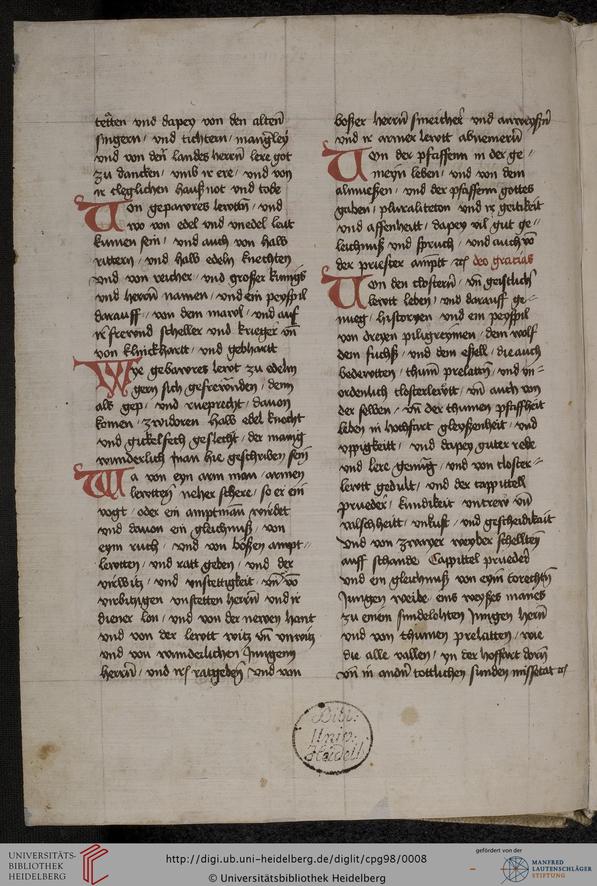 tetten vnd dapey von den alten
singern / vnd tichtern / mangley
vnd von den landes herrn lere got
zu dancken / vmb ir ere / vnd von
ir cleglichen hauß not vnd tode
Von gepawres lewttn / vnd
wo von edel vnd vnedel leut
kumen sein / vnd auch von halb
rittern / vnd halb edeln knechten
vnd von reicher / vnd großer kunigs
vnd herrn namen / vnd ein peyspil
darauff / von dem marol / vnd auf
ir frewnd scheller vnd krieger vn
von klinckhartt / vnd gebhartt
Wye gebawres lewt zu edeln
gern sich gefrewnden / denn
als gep / vnd rueprecht / dauon
komen / zwidoren halb edel knecht
vnd gickelsech geslecht / der manig
wunderlich man hie geschriben sein
Wa von eyn arm man / armen
lewtten neher schere / so er ein
vogt / oder ein amptman wirdet
vnd dauon ein gleichnuß / von
eym ruch / vnd von bößen ampt=
lewtten / vnd ratt geben / vnd der
virwitz / vnd vnstettigkeit / vn vo
virbitzigen vnstetten herrn vnd ir
diener lon / vnd von der newen hant
vnd von der lewtt witz vn vnwitz
vnd von wunderlichen Jungenn
herrn / vnd irs ratgeben vnd von
boßer herrn smeicher vnd anweyser
vnd ir armer lewtt abnemern
Von der pfaffenn in der ge=
meyn leben / vnd von dem
almueßen / vnd der pfaffenn gottes
gaben / pluraliteton vnd ir geitikeit
vnd affenheitt / dapey vil gut ge=
leichnuß vnd spruch / vnd auch vo
der priester amptt etc deo gracias
Von den closteru / vn geistlich
lewtt leben / vnd darauff ge=
nueg / historyen vnd ein peyspil
von dreyen piligreymen / dem wolf
dem fuchß / vnd dem eselle / die auch
bedewtten / thum prelatten / vnd vn=
ordenlich closterlewtt / vn auch von
der selben / vn der thumen pfaffheit
leben in hochfart gleyßenheit / vnd
vppigkeitt / vnd dapey guter rede
vnd lere genug / vnd von closter=
lewtt gedult / vnd der cappittell
prueder / kundikeit vntrew vn
valschheitt / vnkust / vnd gescheidikait
vnd von zwayer weyber schelltten
auff schande Cappittel prueder
vnd ein gleichnuß von eym torechtn
Jungen weibe / eins weyßes manes
zu einem sundelohten Jungen herrn
vnd von thumen prelatten / wie
die alle vallen / yn der hoffart dorn
vn in andn tottlichen sunden missetat etc
Bibl:
Univ:
Heidelb
UNIVERSITÄTS-
BIBLIOTHEK
HEIDELBERG
http://digi.ub.uni-heidelberg.de/diglit/cpg98/0008
© Universitätsbibliothek Heidelberg
gefördert von der
MANFRED
LAUTENSCHLÄGER
STIFTUNG